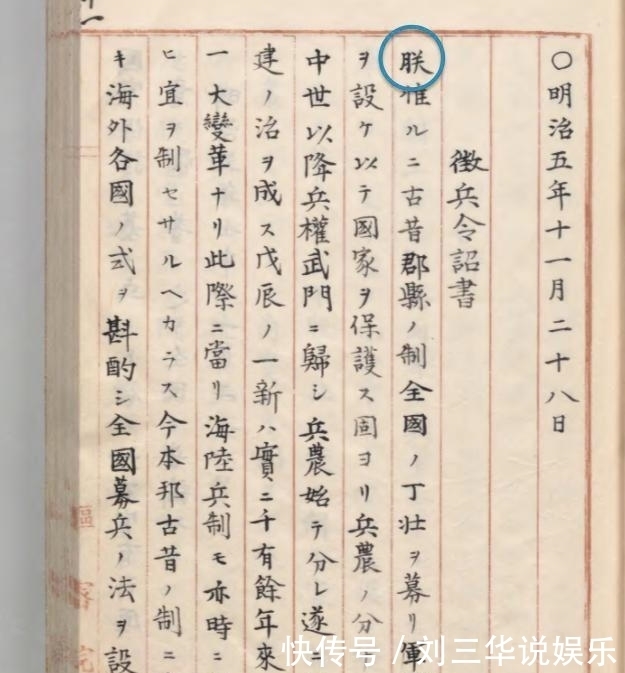 〇明治五年十一月二十八日
徴兵令詔書
朕惟ルニ古昔郡縣ノ制全國ノ丁壮ヲ募リ軍
ヲ設ケ以テ國家ヲ保護ス固ヨリ兵農ノ分
中世以降兵權武門ニ歸シ兵農始テ分レ遂ニ
建ノ治ヲ成ス戊辰ノ一新ハ實ニ千有餘年來
一大變革ナリ此際ニ當リ海陸兵制モ亦時ニ
ヒ宜ヲ制セサルヘカラス今本邦古昔ノ制ニ
キ海外各國ノ式ヲ斟酌シ全國募兵ノ法ヲ設
樞
密
院
快传号/刘三华说娱乐